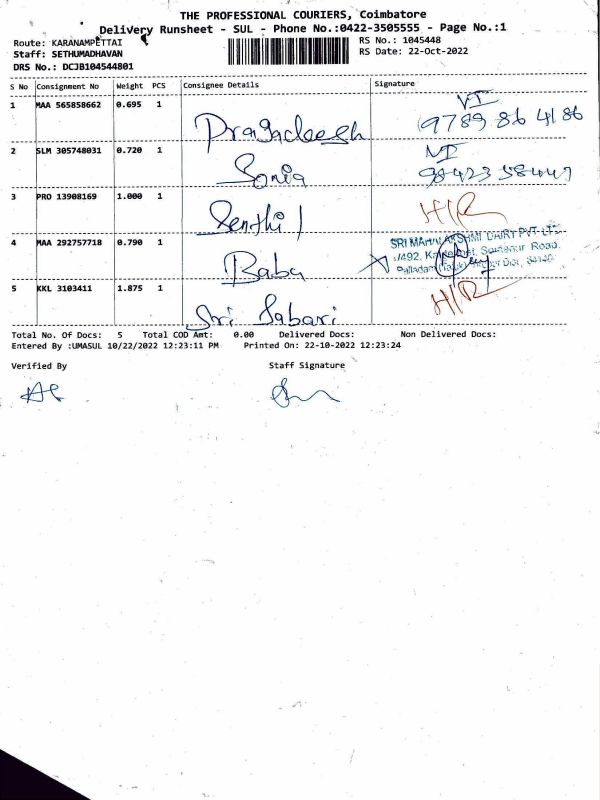 THE PROFESSIONAL COURIERS, Coimbatore
Delivery Runsheet - SUL - Phone No.:0422-3505555 - Page No.:1
Route: KARANAMPETTAI
RS No.: 1045448
Staff: SETHUMADHAVAN
RS Date: 22-Oct-2022
DRS No.: DCJB104544801
S No Consignment No Weight PCS Consignee Details Signature
1 MAA 565858662 0.695 1 Pragadeesh 9789 86 4186
2 SLM 305748031 0.720 1 Sonia 98423 58447
3 PRO 13908169 1.000 1 Senthil H/R
4 MAA 292757718 0.790 1 Baba
SRI MAHALAKSHMI DAIRY PVT LTD
5 KKL 3103411 1.875 1 Sri Sabari H/R
Total No. Of Docs: 5 Total COD Amt: 0.00 Delivered Docs: Non Delivered Docs:
Entered By :UMASUL 10/22/2022 12:23:11 PM Printed On: 22-10-2022 12:23:24
Verified By Staff Signature